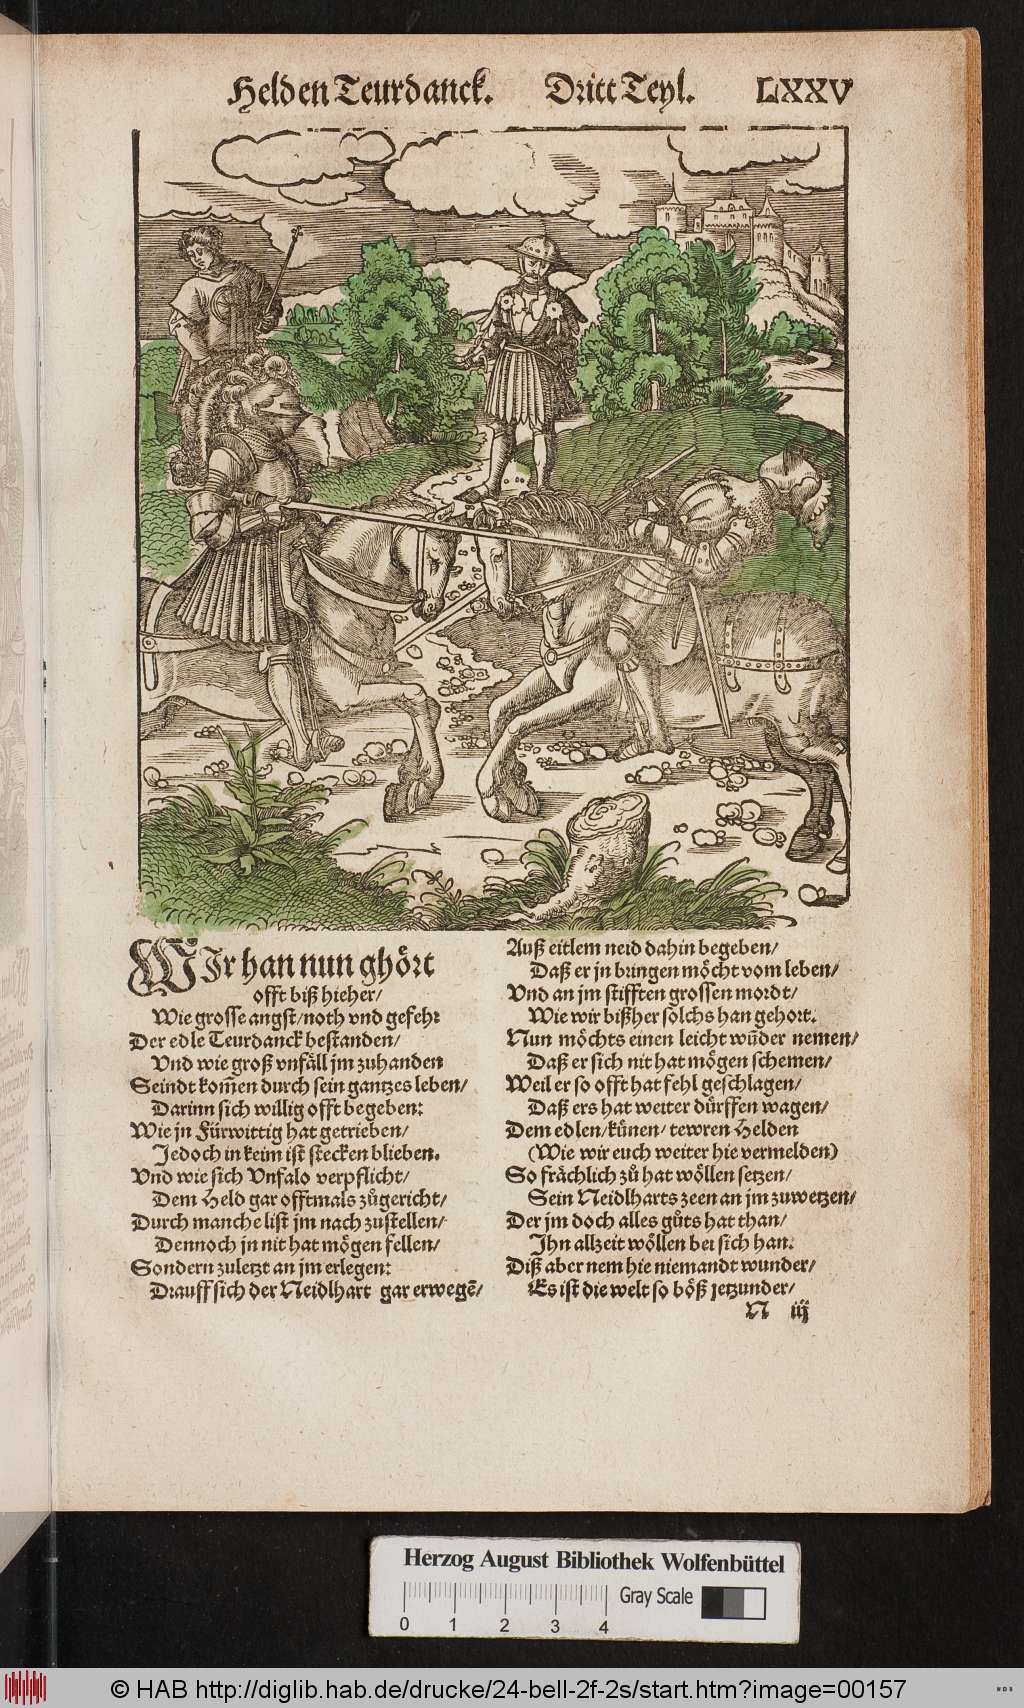 Helden Teurdanck. Dritt Teyl. LXXV
WIr han nun ghört
offt biß hieher/
Wie grosse angst/noth vnd gefehr
Der edle Teurdanck bestanden/
Vnd wie groß vnfäll jm zuhanden
Seindt kom̃en durch sein gantzes leben/
Darinn sich willig offt begeben:
Wie jn Fürwittig hat getrieben/
Jedoch in keim ist stecken blieben.
Vnd wie sich Vnfalo verpflicht/
Dem Held gar offtmals zůgericht/
Durch manche list jm nach zustellen/
Dennoch jn nit hat mögen fellen/
Sondern zuletzt an jm erlegen:
Drauff sich der Neidlhart gar erwegẽ/
Auß eitlem neid dahin begeben/
Daß er jn bringen möcht vom leben/
Vnd an jm stifften grossen mordt/
Wie wir bißher solchs han gehort.
Nun möchts einen leicht wũder nemen/
Daß er sich nit hat mögen schemen/
Weil er so offt hat fehl geschlagen/
Daß ers hat weiter dürffen wagen/
Dem edlen/künen/tewren Helden
(Wie wir euch weiter hie vermelden)
So frächlich zů hat wöllen setzen/
Sein Neidlharts zeen an jm zuwetzen/
Der jm doch alles gůts hat than/
Ihn allzeit wöllen bei sich han.
Diß aber nem hie niemandt wunder/
Es ist die welt so böß jetzunder/
N iij
Herzog August Bibliothek Wolfenbüttel
Gray Scale
0 1 2 3 4
© HAB http://diglib.hab.de/drucke/24-bell-2f-2s/start.htm?image=00157